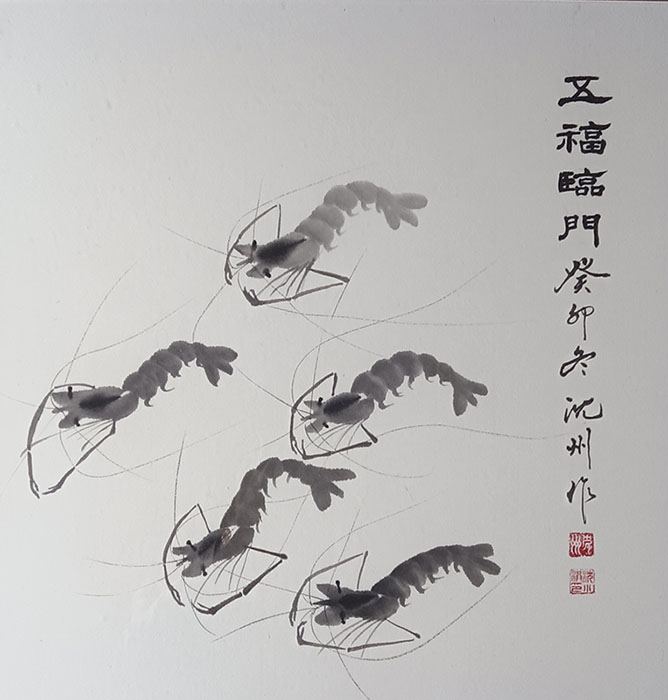 五福臨門癸卯冬沈州作